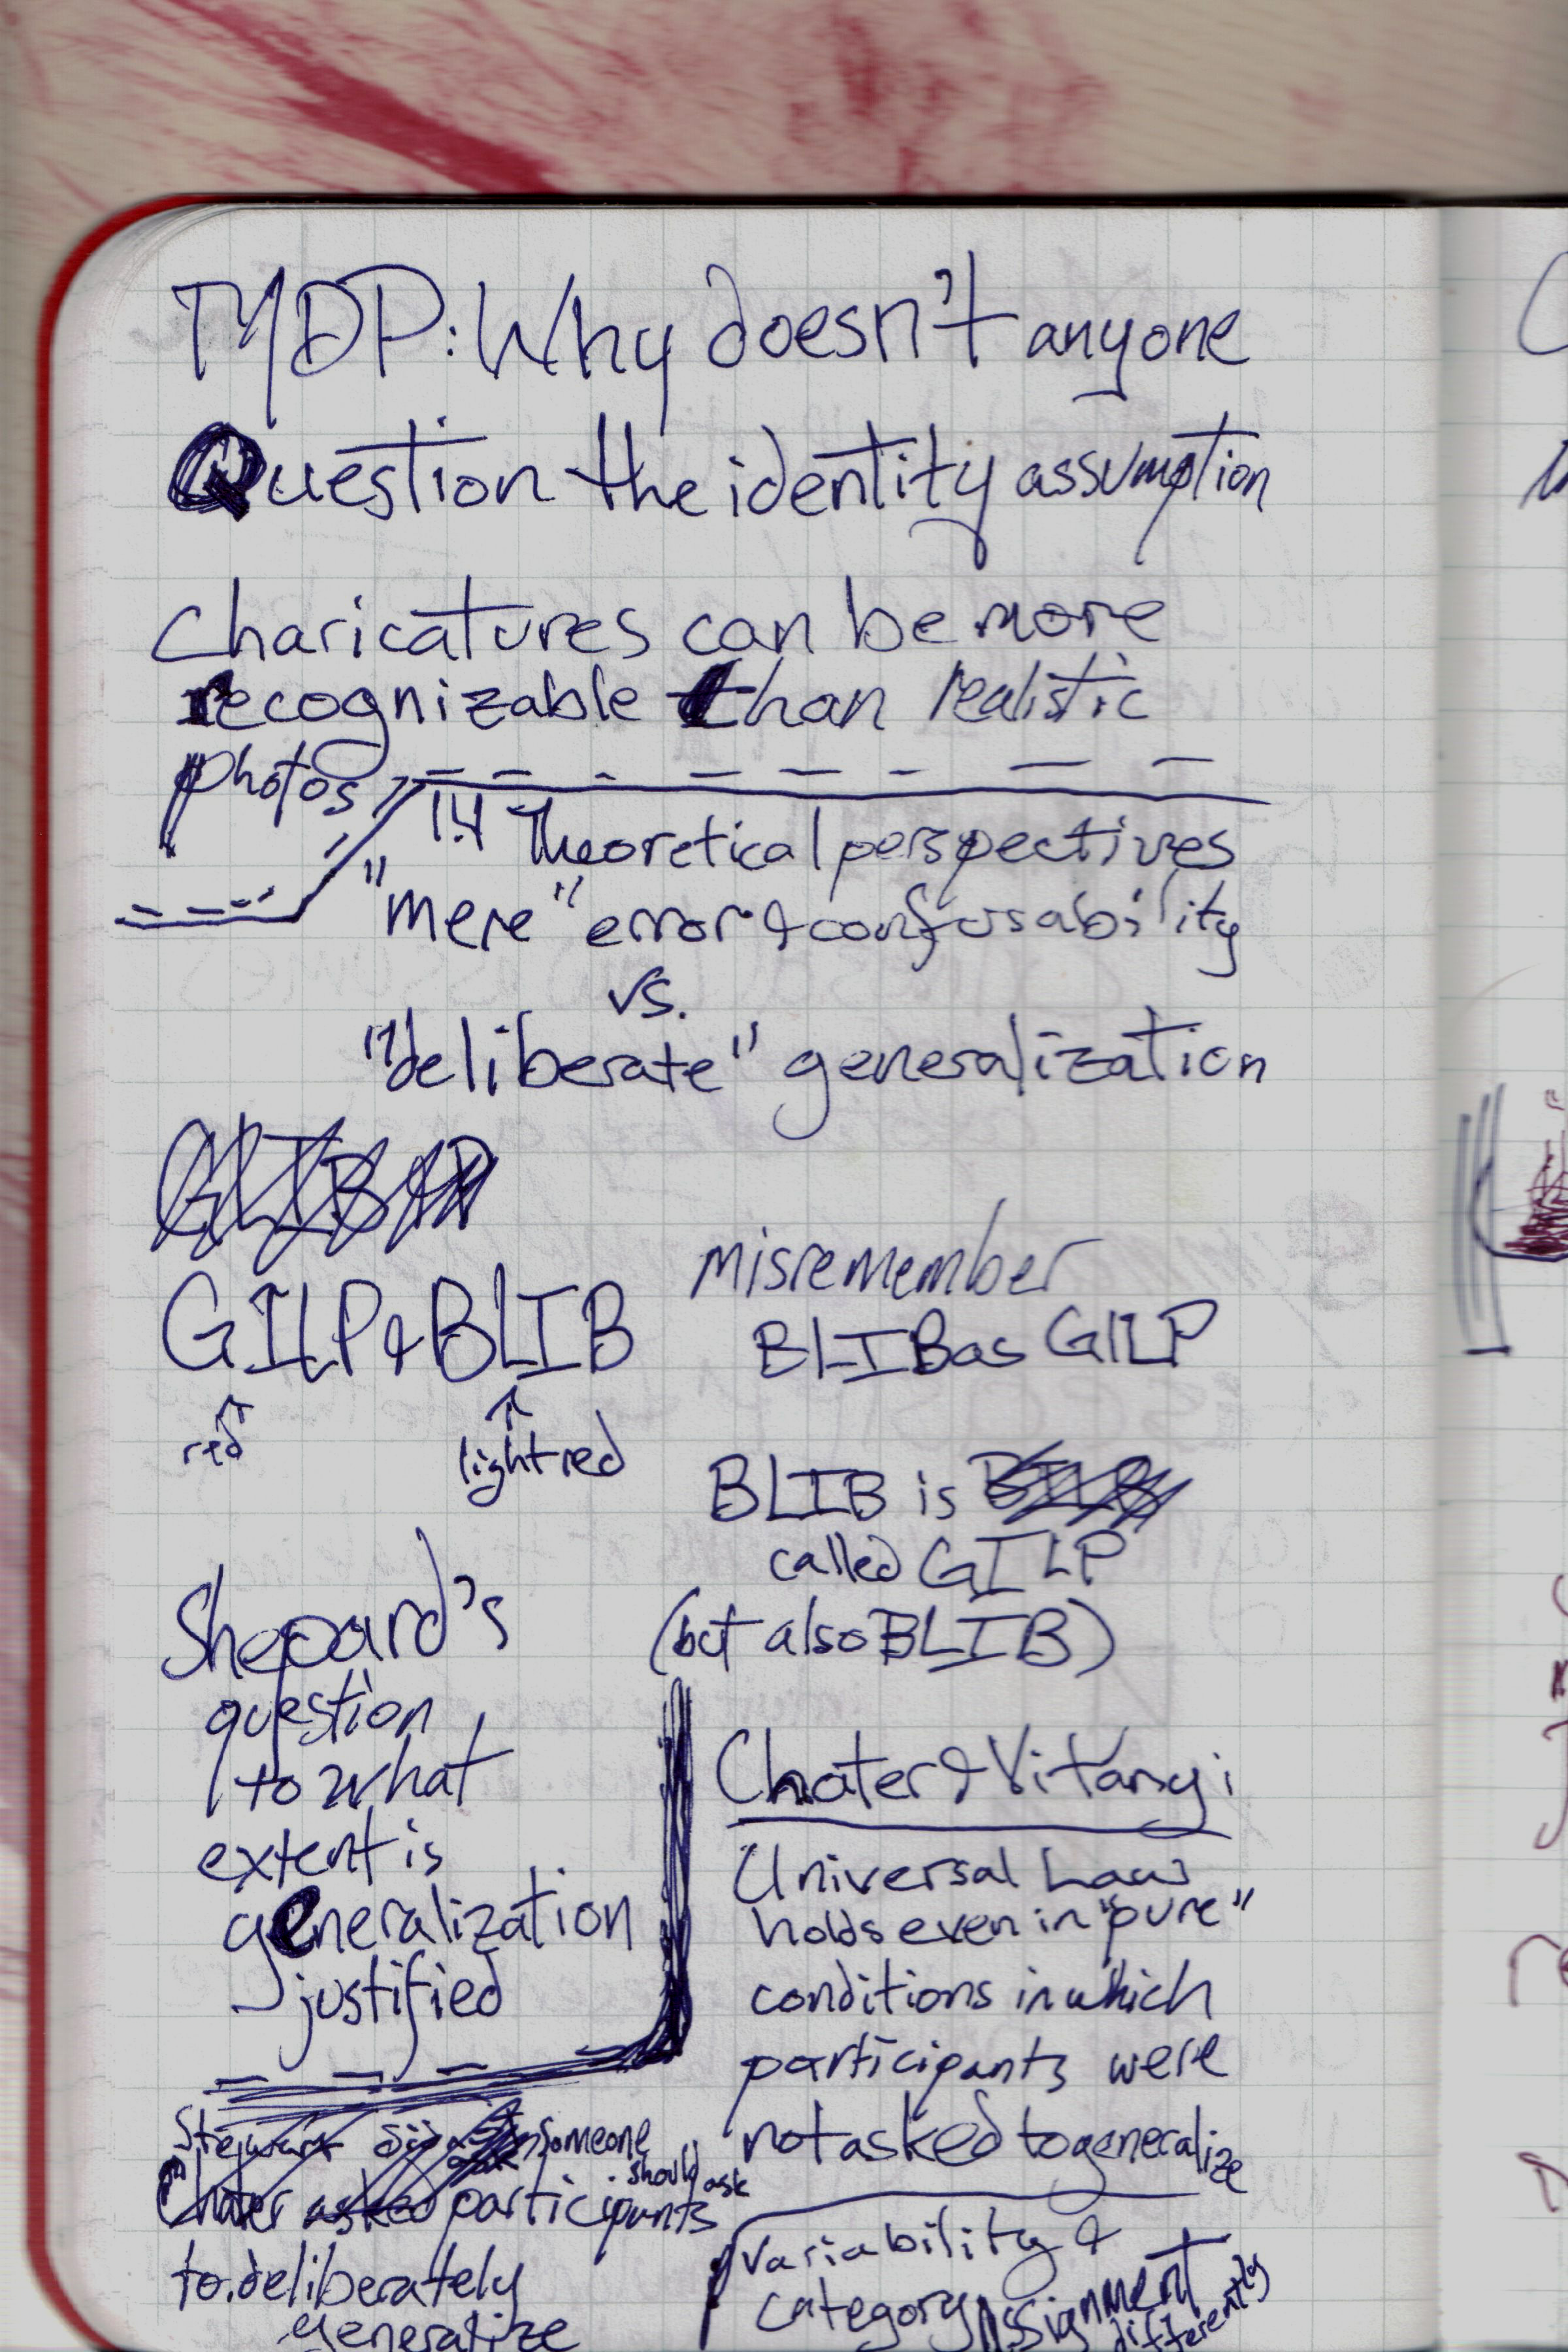 MDP: Why doesn't anyone
Question the identity assumption
Charicatures can be more
recognizable than realistic
photos
1.4 Theoretical perspectives
"mere" error & confusability
vs.
"deliberate" generalization
GILP & BLIB
red
light red
misremember
BLIB as GILP
BLIB is
called GILP
(but also BLIB)
Shepard's
question
to what
extent is
generalization
justified
Someone
should ask
participants
to deliberately
generalize
Chater & Vitanyi
Universal Law
holds even in "pure"
conditions in which
participants were
not asked to generalize
variability &
category assignment
differently